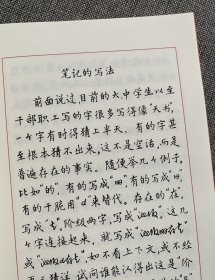 笔记的写法
前面说过目前的大中学生以至
干部职工写的字很多写得像“天书”,
一个字有时得猜上半天,有的字甚
至根本猜不出来,这不是空话,而是
普遍存在的事实。随便举几个例子,
比如“的”,有的写成“m”有的写成“,
有的干脆用“d”来替代。存在的“在”,
写成“t”阶级两字,写成“,这几
个字连接起来,就写成“
”,如不看上下文,或不经
试问谁能认得出这是“阶